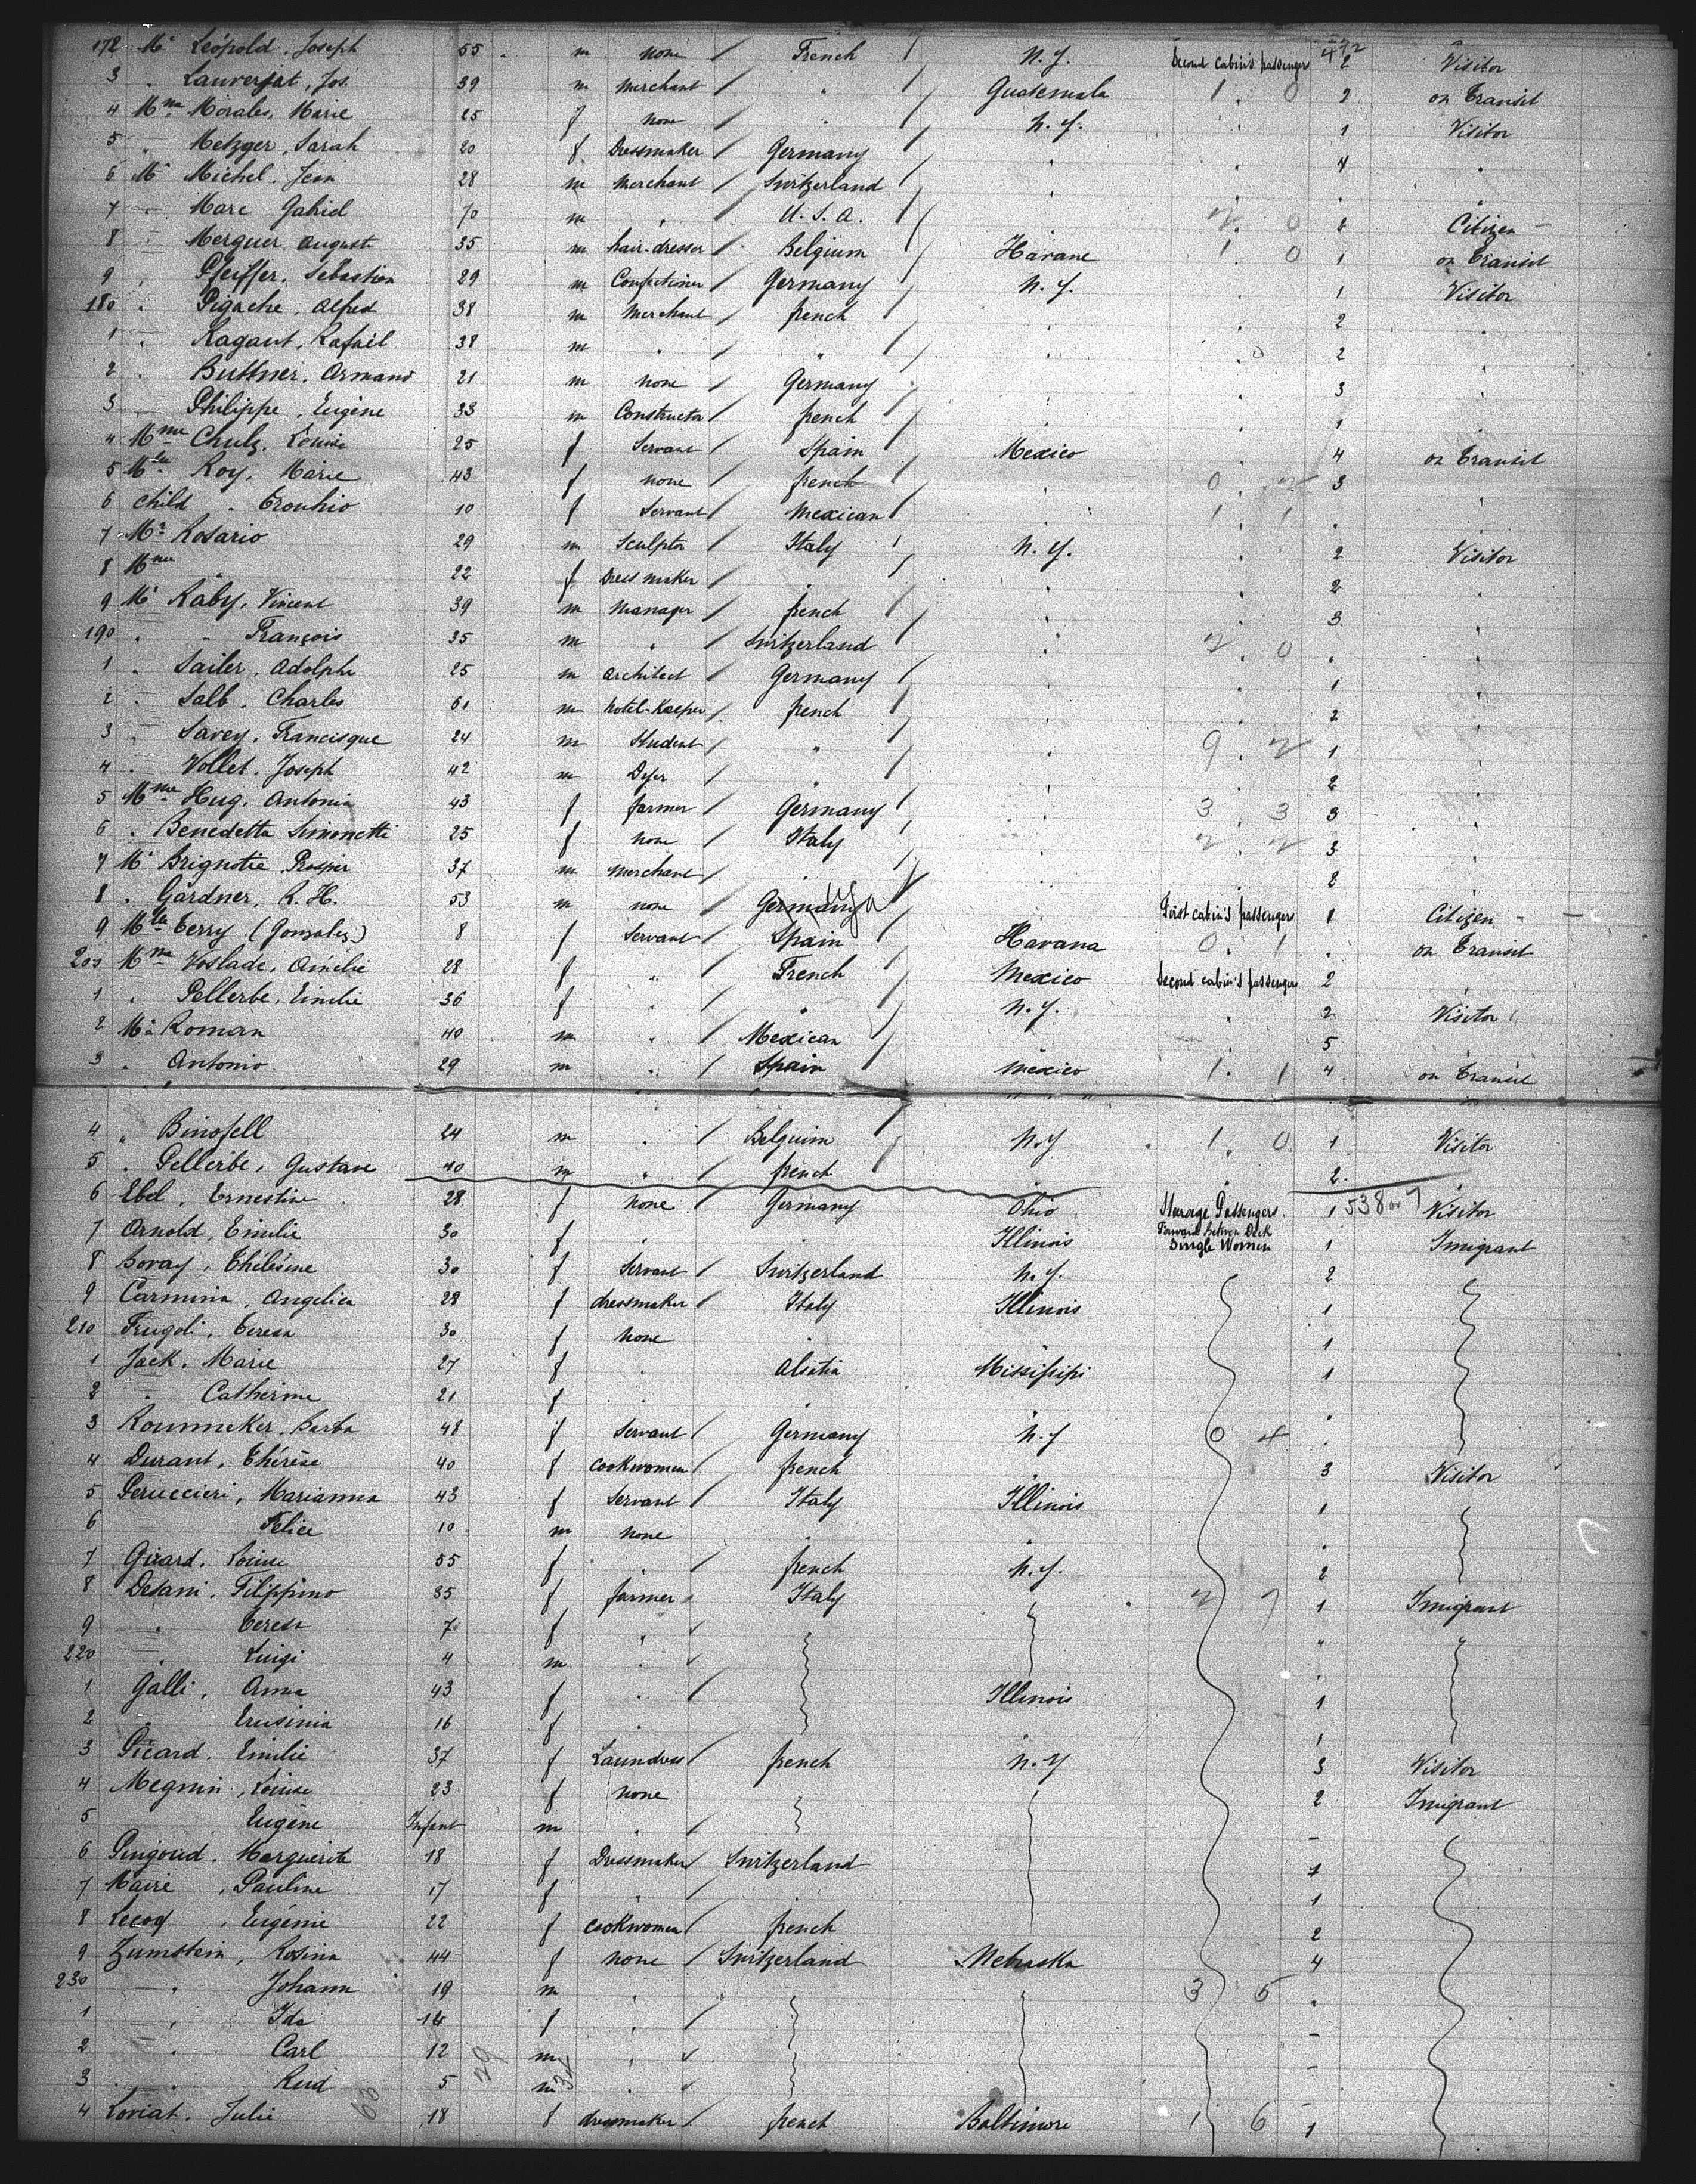 472
172 Mr Léopold, Joseph 55 m none / French / N.Y. Second Cabin's passenger 2 Visitor
3 " Lauverjat, Jos. 39 m merchant / " / Guatemala 1 . 0 2 on Transit
4 Mme Morales, Marie 25 f none / " / N.Y. " 1 Visitor
5 " Metzger, Sarah 20 f. Dressmaker / Germany / " " 4 "
6 Mr Michel, Jean 28 m merchant / Switzerland / " " " "
7 " Marc Gabriel 70 m " / U.S.A. / " 2 . 0 2 Citizen -
8 " Merguer August 35 m hair-dresser / Belgium / Havane 1 . 0 1 on Transit
9 " Pfeiffer, Sebastien 29 m Confectioner / Germany / N.Y. " 1 Visitor
180 " Pigache, Alfred 38 m Merchant / french / " " 2 "
1 " Ragaut, Rafaël 38 m " / " / " " 2 "
2 " Buttner, Armand 21 m none / Germany / " " 3 "
3 " Philippe, Eugène 33 m Constructor / french / " " 1 "
4 Mme Chulz, Louise 25 f Servant / Spain / Mexico " 4 on Transit
5 Mlle Roy, Marie 43 f none / french / " 0 . 2 3 "
6 child " Trouhio 10 f Servant / Mexican / " 1 . 1 " "
7 Mr Rosario 29 m Sculptor / Italy / N.Y. " 2 Visitor
8 Mme " 22 f Dress maker / " / " " 2 "
9 Mr Raby, Vincent 39 m manager / french / " " 3 "
190 " " François 35 m " / Switzerland / " 2 . 0 " "
1 " Sailer, Adolphe 25 m architect / Germany / " " 1 "
2 " Salb, Charles 61 m hotel-Keeper / french / " " 2 "
3 " Savey, Francisque 24 m Student / " / " 9 2 1 "
4 " Vollet, Joseph 42 m Dyer / " / " " 2 "
5 Mme Hug, Antonia 43 f farmer / Germany / " 3 . 3 3 "
6 " Benedetta Simonetti 25 f none / Italy / " 2 . 2 3 "
7 Mr Brignotie Prosper 37 m merchant / " / " " 2 "
8 " Gardner, R. H. 53 m none Germany USA / " First cabin's passenger 1 Citizen -
9 Mlle Terry (Gonzales) 8 f Servant / Spain / Havana 0 . 1 " on Transit
200 Mme Voslade, Amélie 28 f " / French / Mexico Second cabin's passengers 2 "
1 " Pellerbe, Emilie 36 f " / " / N.Y. " 2 Visitor
2 Mr Roman 40 m " / Mexican / " " 5 "
3 " Antonio 29 m " / Spain / Mexico 1 . 1 4 on Transit
4 " Binofell 24 m " / Belguim / N.Y 1 . 0 1 Visitor
5 " Pellerbe, Gustave 40 m " / french / " " 2 "
6 Ebel, Ernestine 28 f none / Germany Ohio Steerage Passengers. 1 538 or 7 Visitor
7 Arnold, Emilie 30 f " " Illinois Forward Between Deck Single Women 1 Imigrant
8 Boray, Thélésine 30 f Servant / Switzerland N.Y. 2
9 Carmina, Angelica 28 f dressmaker / Italy Illinois 1
210 Frugoli, Teresa 30 f none " " 1
1 Jack, Marie 27 f " Alsatia Missisipipi 1
2 " Catherine 21 f " " " "
3 Roumneker, Barba 48 f Servant / Germany N.Y 0 4 "
4 Durant, Thérèse 40 f cookwomen / french " 3 Visitor
5 Peruccieri, Marianna 43 f Servant / Italy Illinois 1
6 Felice 10 m none " " "
7 Girard, Louise 55 f " / french N.Y. 2
8 Desani, Filippino 35 f farmer / Italy " 2 7 1 Imigrant
9 " Teresa 7 f " " "
220 " Luigi 4 m " "
1 Galli, Anna 43 f " / Illinois 1
2 " Erusinia 16 f " 1
3 Picard, Emilie 37 f Laundress / french N.Y 3 Visitor
4 Megnin, Louise 23 f none 2 Imigrant
5 Eugène Infant m " / -
6 Pingoud, Marguerite 18 f Dressmaker / Switzerland 1
7 Maire, Pauline 17 f " / " 1
8 Lecoq, Eugénie 22 f cookwomen / french 2
9 Zumstein, Rosina 44 f none / Switzerland Nebraska 4
230 " Johann 19 m " 3 5 "
1 " Ida 14 f " / -
2 " Carl 12 m " -
3 " Reid 5 m " -
4 Loriat, Julie 18 f dressmaker / french Baltimore 1 6 1
63 29 34